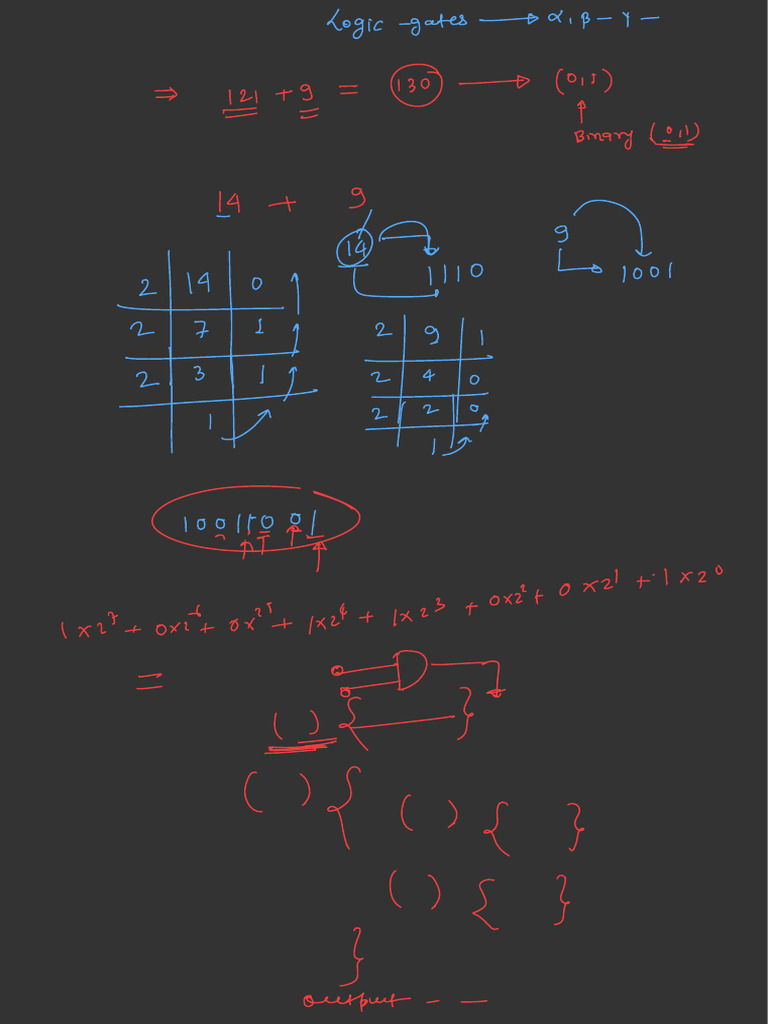 Logic-gates → α, β - γ -
⇒ 121 + 9 = 130 → (0,1)
Binary (0,1)
14 + 9
14 1110
9 1001
2 14 0
2 7 1
2 3 1
1
2 9 1
2 4 0
2 2 0
1
10011001
1×2⁷ + 0×2⁶ + 0×2⁵ + 1×2⁴ + 1×2³ + 0×2² + 0×2¹ + 1×2⁰
=
( ) { }
( ) {
( ) { }
( ) { }
}
output - -